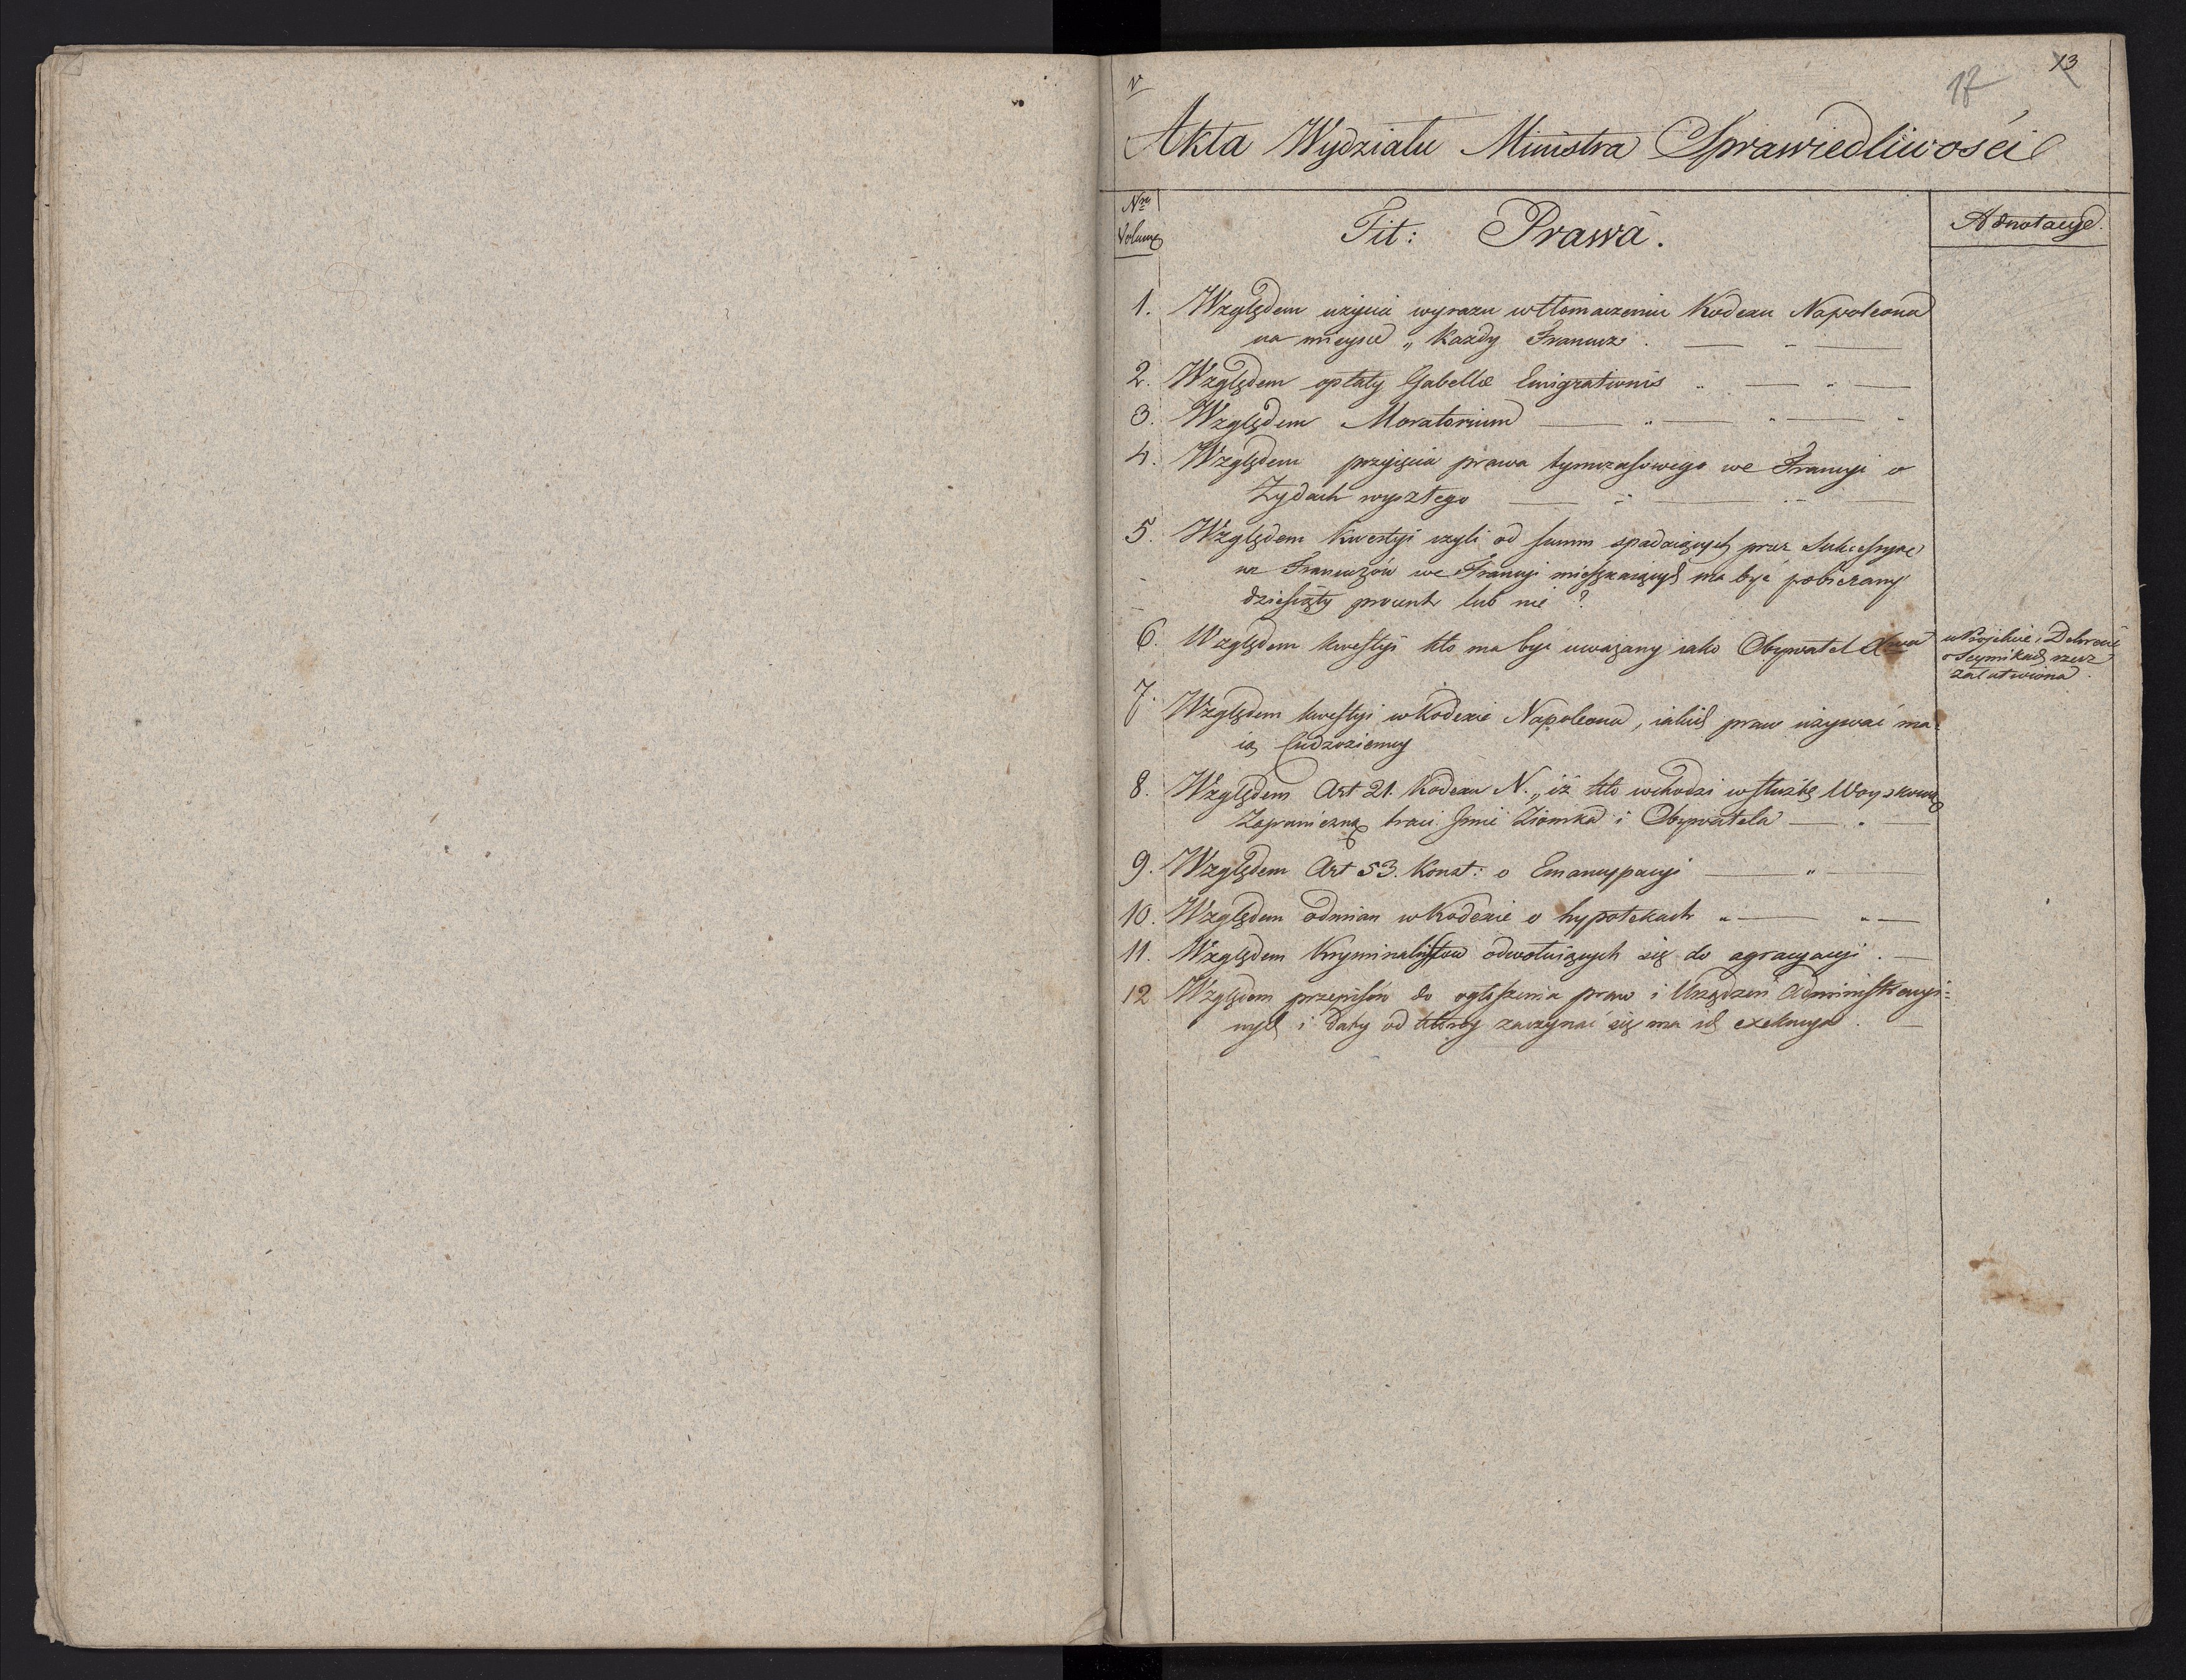 V
17
13
Akta Wydziału Ministra Sprawiedliwości
Nro
Volum
Tit: Prawa.
Adnotacye.
1. Względem użycia wyrazu w tłomaczeniu Kodexu Napoleona
na mieysce „ Każdy Francuz.
2. Względem opłaty Gabellae Emigrationis
3. Względem Moratorium
4. Względem przyjęcia prawa tymczasowego we Francyi o
Żydach wyszłego
5. Względem kwestyi czyli od summ spadaiących przez Sukcessye
na Francuzów we Francyi mieszkaiących ma być pobierany
dziesiąty procent lub nie ?
6. Względem kwestyi kto ma być uważany iako Obywatel Xwa
w Projekcie, Dekrecie
o Seymikach rzecz
załatwiona.
7. Względem kwestyi w Kodexie Napoleona, iakich praw używać ma-
ią Cudzoziemcy
8. Względem Art 21. Kodexu N. „ iż kto wchodzi w służbę Woyskową
Zagraniczną traci Imie Ziomka i Obywatela
9. Względem Art 53. Konst: o Emancypacyi
10. Względem odmian w Kodexie o hypotekach
11. Względem Kryminalistów odwołuiących się do agracyacyi.
12 Względem przepisów do ogłoszenia praw i Urządzeń Administracyi=
nych i daty od którey zaczynać się ma ich exekucya.